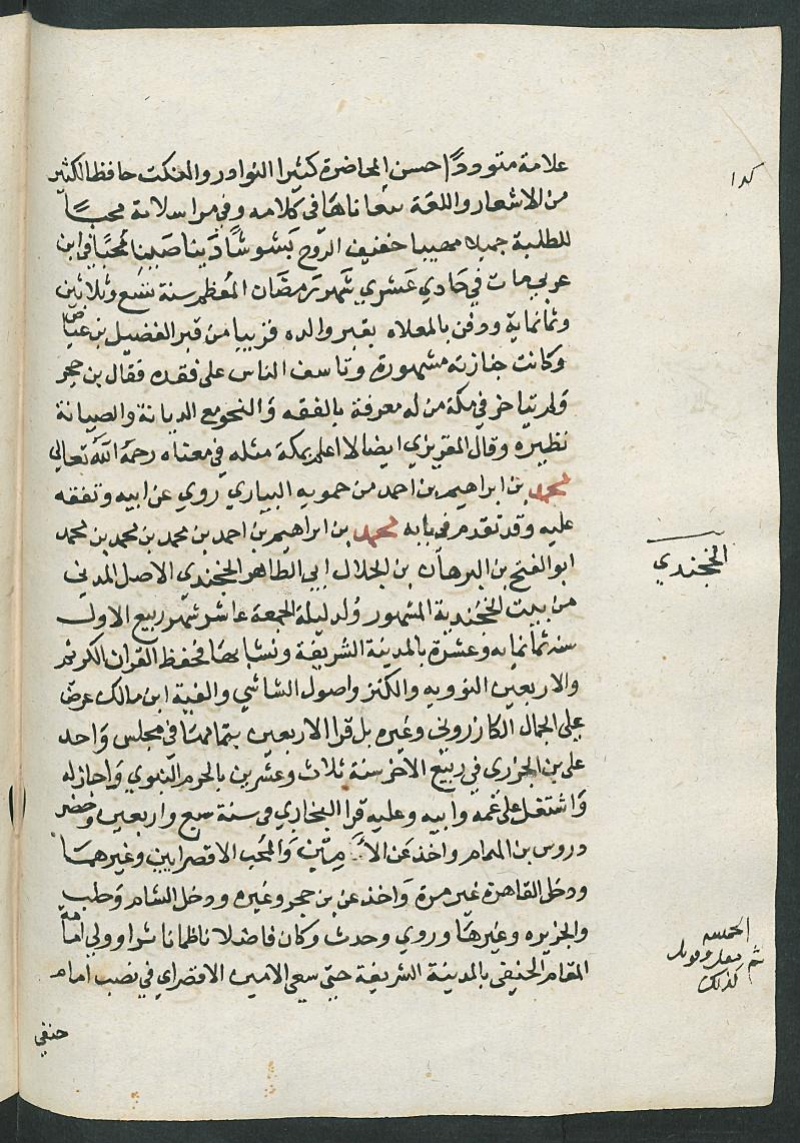 علامة متوددًا حسن المحاضرة كثيرا النوادر والنكت حافظا لكثير
من الاشعار واللغة معاناها في كلامه وفي مراسلاته محبًا
للطلبة جميلا مهيبا خفيف الروح بشوشًا دينا صينا محبًا في ابن
عربي مات في حادي عشري شهر رمضان المعظم سنة تسع وثلاثين
وثمانماية ودفن بالمعلاه بقبر والده قريبا من قبر الفضيل بن عياض
وكانت جنازته مشهورة وتاسف الناس على فقده فقال بن حجر
ولم يتاخر في مكة من له معرفة بالفقه والنحو مع الديانة والصيانة
نظيره وقال المقريزي ايضا لا اعلم بمكة مثله في معناه رحمة الله تعالى
محمد بن ابراهيم بن احمد من حمويه البياري روي عن ابيه وتفقه
عليه وقد تقدم في بابه محمد بن ابراهيم بن احمد بن محمد بن محمد بن محمد
ابو الفتح بن البرهان بن الجلال ابي الطاهر الخجندي الاصل المدني
الخجندي
من بيت الخجندية المشهور ولد ليلة الجمعة عاشر شهر ربيع الاول
سنه ثمانمايه وعشرة بالمدينة الشريفة ونشا بها فحفظ القران الكريم
والاربعين النوويه والكنز واصول الشاشي والفية ابن مالك عرض
على الجمال الكازروني وغيره بل قرا الاربعين بتمامها في مجلس واحد
على بن الجزري في ربيع الاخر سنة ثلاث وعشرين بالحرم النبوي واجاز له
واشتغل على عمه وابيه وعليه قرا البخاري في سنة سبع واربعين وحضر
دروس بن الهمام واخذ عن الامين والمحب الاقصرايين وغيرهما
ودخل القاهرة غير مرة واخذ عن بن حجر وغيره ودخل الشام وحلب
والجزيره وغيرها وروي وحدث وكان فاضلا ناظما ناثرا وولي امامة
المقام الحنفي بالمدينة الشريفة حتى سعي الامين الاقصراي في نصب امام
كذلك
حنفي